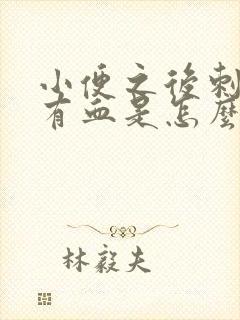 小便之後刺
有血是怎麼
林毅夫